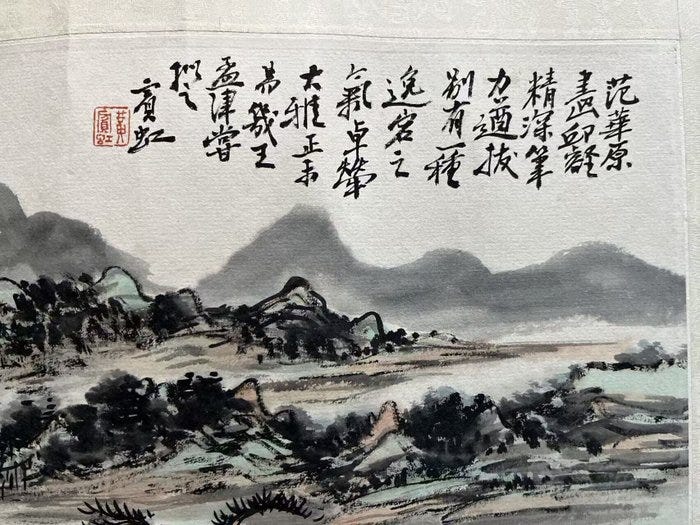 范華原
畫邱壑
精深筆
力遒拔
別有一種
逸宕之
氣卓犖
大雅正未
易幾王
孟津嘗
擬之
賓虹
黃賓虹